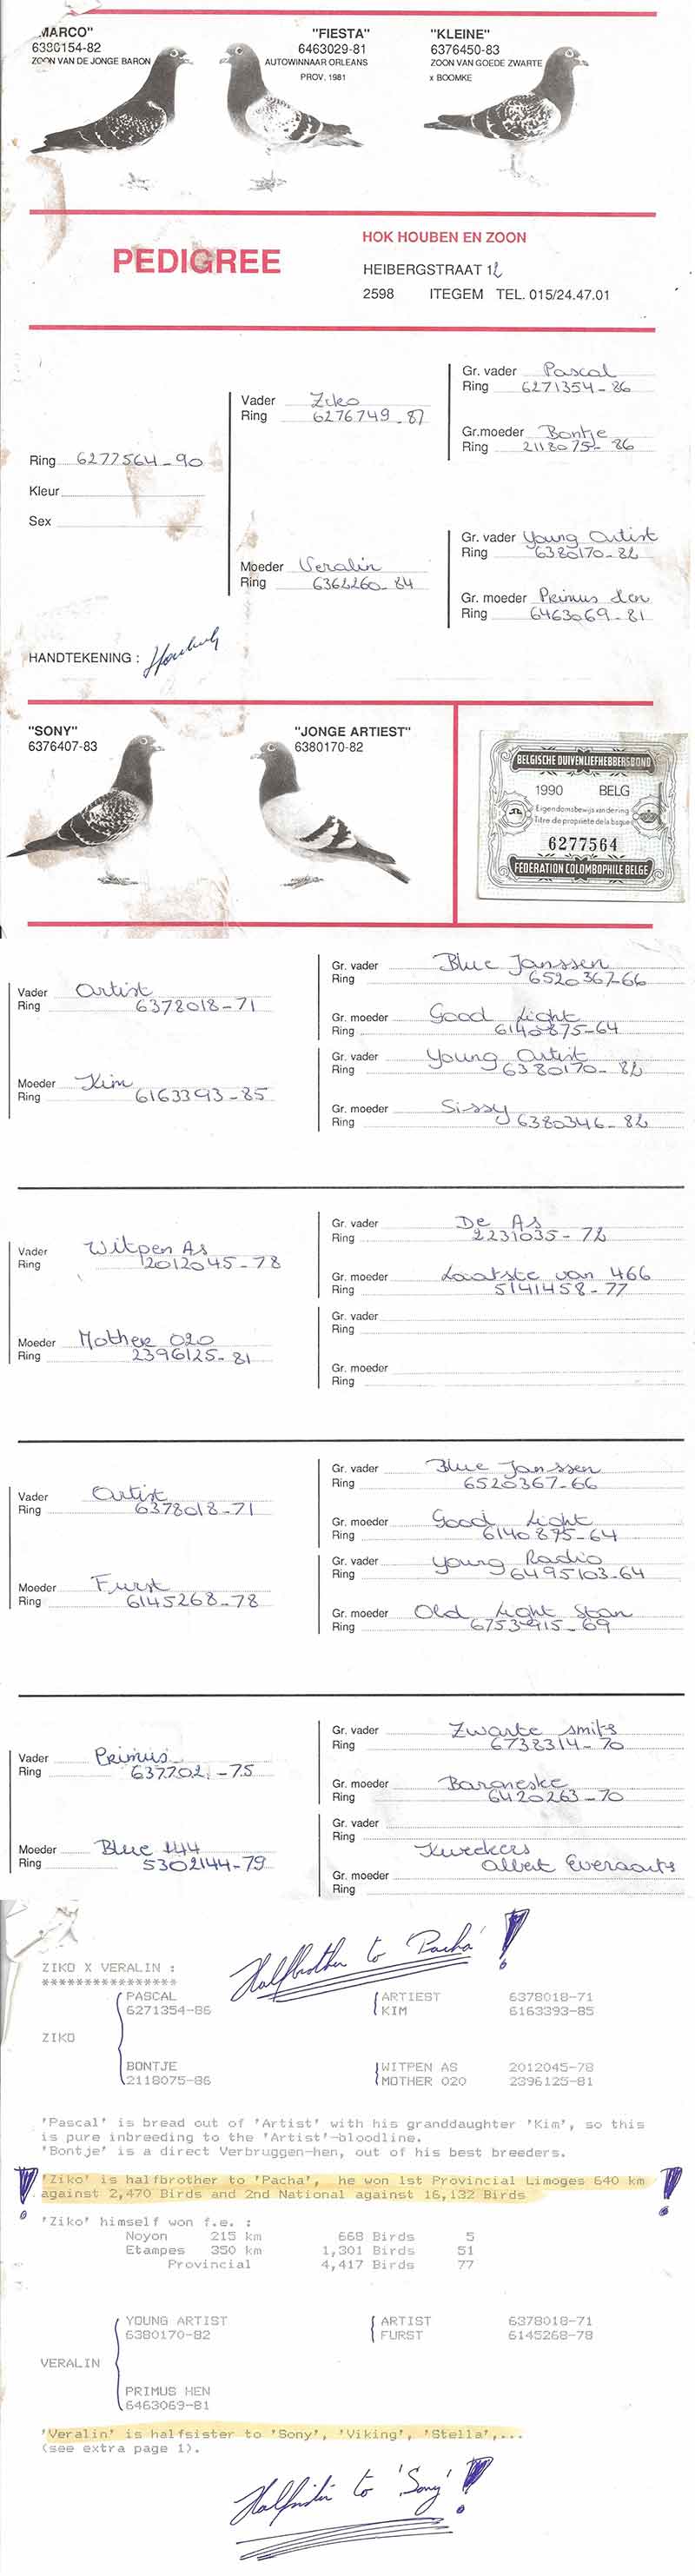 MARCO"
6380154-82
ZOON VAN DE JONGE BARON
"FIESTA"
6463029-81
AUTOWINNAAR ORLEANS
PROV. 1981
"KLEINE"
6376450-83
ZOON VAN GOEDE ZWARTE
x BOOMKE
PEDIGREE
HOK HOUBEN EN ZOON
HEIBERGSTRAAT 12
2598 ITEGEM TEL. 015/24.47.01
Ring 6277564-90
Kleur
Sex
Vader Ziko
Ring 6276749-87
Moeder Veralin
Ring 6362260-84
Gr. vader Pascal
Ring 6271354-86
Gr.moeder Bontje
Ring 2118075-86
Gr. vader Young Artist
Ring 6380170-82
Gr. moeder Primus den
Ring 6463069-81
HANDTEKENING :
"SONY"
6376407-83
"JONGE ARTIEST"
6380170-82
BELGISCHE DUIVENLIEFHEBBERSBOND
1990 BELG
Eigendomsbewijs van de ring
Titre de propriété de la bague
6277564
FEDERATION COLOMBOPHILE BELGE
Vader Artist
Ring 6378018-71
Moeder Kim
Ring 6163393-85
Gr. vader Blue Janssen
Ring 6520367-66
Gr. moeder Good Light
Ring 6140875-64
Gr. vader Young Artist
Ring 6380170-82
Gr. moeder Sissy
Ring 6380346-82
Vader Witpen As
Ring 2012045-78
Moeder Mother 020
Ring 2396125-81
Gr. vader De As
Ring 2231035-72
Gr. moeder Laatste van 466
Ring 5141458-77
Gr. vader
Ring
Gr. moeder
Ring
Vader Artist
Ring 6378018-71
Moeder Furst
Ring 6145268-78
Gr. vader Blue Janssen
Ring 6520367-66
Gr. moeder Good Light
Ring 6140875-64
Gr. vader Young Radio
Ring 6495103-64
Gr. moeder Old Light Stan
Ring 6753915-69
Vader Primus
Ring 637702. -75
Moeder Blue 144
Ring 5302144-79
Gr. vader Zwarte smits
Ring 6738314-70
Gr. moeder Baroneske
Ring 6420263-70
Gr. vader
Ring
Kwekers
Albert Everaarts
Gr. moeder
Ring
Halfbrother to 'Pacha' !
ZIKO X VERALIN :
****************
PASCAL ARTIEST 6378018-71
6271354-86 KIM 6163393-85
ZIKO
BONTJE WITPEN AS 2012045-78
2118075-86 MOTHER 020 2396125-81
'Pascal' is bread out of 'Artist' with his granddaughter 'Kim', so this
is pure inbreeding to the 'Artist'-bloodline.
'Bontje' is a direct Verbruggen-hen, out of his best breeders.
! 'Ziko' is halfbrother to 'Pacha', he won 1st Provincial Limoges 640 km !
against 2,470 Birds and 2nd National against 16,132 Birds
'Ziko' himself won f.e. :
Noyon 215 km 668 Birds 5
Etampes 350 km 1,301 Birds 51
Provincial 4,417 Birds 77
YOUNG ARTIST ARTIST 6378018-71
6380170-82 FURST 6145268-78
VERALIN
PRIMUS HEN
6463069-81
'Veralin' is halfsister to 'Sony', 'Viking', 'Stella',...
(see extra page 1).
Halfsister to 'Sony' !